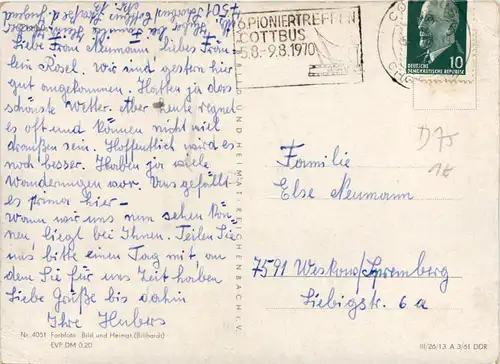 6. PIONIERTREFFEN
COTTBUS
5.8.-9.8.1970
DEUTSCHE
DEMOKRATISCHE REPUBLIK
10
Liebe Frau Neumann liebes Fräu-
lein Rosel. Wir sind gestern hier
gut angekommen. Hatten ja das
schönste Wetter. Aber heute regnet
es oft und können nicht viel
draußen sein. Hoffentlich wird es
noch besser. Haben ja viele
Wanderungen vor. Uns gefällt
es prima hier-
Wann wir uns nun sehen kön-
nen liegt bei Ihnen. Teilen Sie
uns bitte einen Tag mit, an
dem Sie für uns Zeit haben
Liebe Grüße bis dahin
Ihre Hubers
BILD UND HEIMAT REICHENBACH i. V.
D75
1€
Familie
Else Neumann
7591 Weskow/Spremberg
Liebigstr. 6a
Nr. 4051 Farbfoto: Bild und Heimat (Billhardt)
EVP DM 0,20
III/26/13 A 3/61 DDR